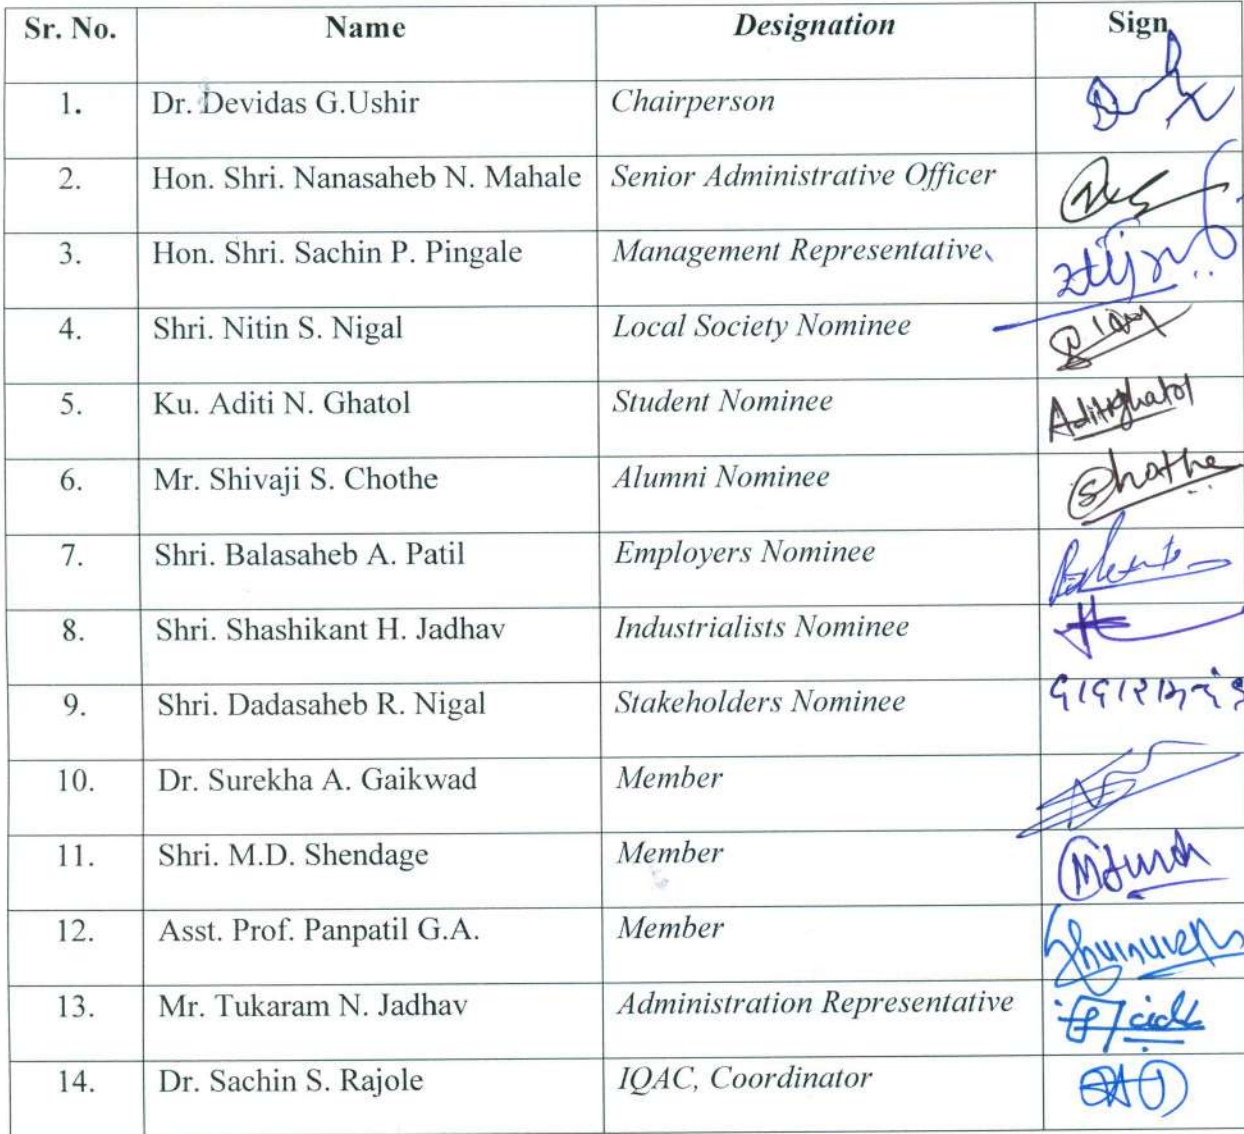 Sr. No. Name Designation Sign
1. Dr. Devidas G.Ushir Chairperson
2. Hon. Shri. Nanasaheb N. Mahale Senior Administrative Officer
3. Hon. Shri. Sachin P. Pingale Management Representative
4. Shri. Nitin S. Nigal Local Society Nominee
5. Ku. Aditi N. Ghatol Student Nominee AditiGhatol
6. Mr. Shivaji S. Chothe Alumni Nominee
7. Shri. Balasaheb A. Patil Employers Nominee
8. Shri. Shashikant H. Jadhav Industrialists Nominee
9. Shri. Dadasaheb R. Nigal Stakeholders Nominee
10. Dr. Surekha A. Gaikwad Member
11. Shri. M.D. Shendage Member
12. Asst. Prof. Panpatil G.A. Member
13. Mr. Tukaram N. Jadhav Administration Representative
14. Dr. Sachin S. Rajole IQAC, Coordinator